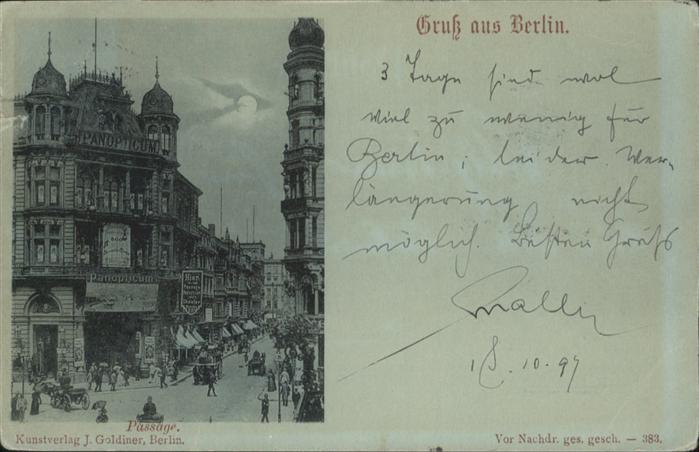 Gruß aus Berlin.
3 Tage sind wol
viel zu wenig für
Berlin; leider Ver-
längerung nicht
möglich. Besten Gruß
18.10.97
PANOPTICUM
Panopticum
Passage.
Kunstverlag J. Goldiner, Berlin.
Vor Nachdr. ges. gesch. — 383.